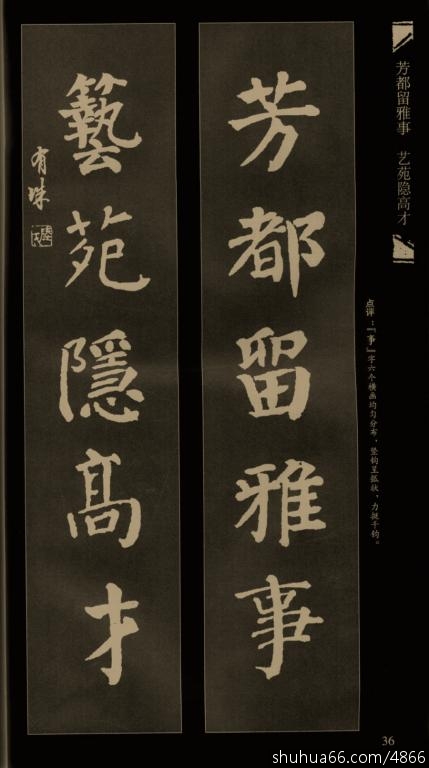 芳都留雅事　艺苑隐高才
点评：「事」字六个横画均匀分布，竖钩呈弧状，力挺千钧。
芳都留雅事
藝苑隱高才
有味
36
shuhua66.com/4866